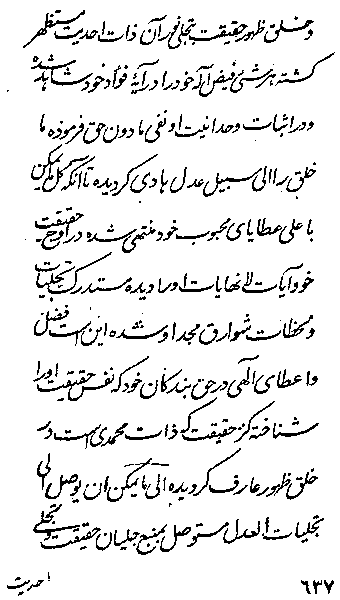 و خلق ظهور حقیقت بتجلی نور آن ذات احدیت مستظهر
گشته هر شیئ فیض اله خود را در آیهٔ فؤاد خود مشاهد شده
و در اثبات وحدانیت او نفی مادون حق فرموده ما
خلق را الی سبیل عدل هادی گردیده تا آنکه کل ما یمکن
با علی عطایای محبوب خود منتهی شده در لوح حقیقت
خود آیات لا نهایات او را دیده مستدرک تجلیات
و لحظات شوارق مجد او شده این است فضل
و اعطای الهی در حق بندگان خود که نفس حقیقت او را
شناخته کز حقیقت که ذات محمدی است در
خلق ظهور عارف گردیده الی ما یمکن ان یوصل الی
تجلیات العدل مستوصل بمنبع جلیان حقیقت و تجلی
احدیت
٦٣٧